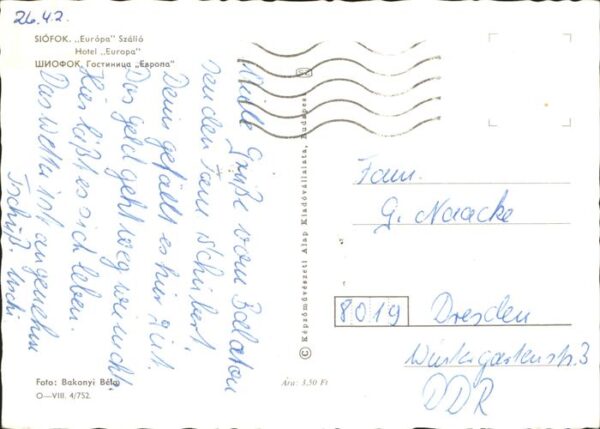 26.4.2.
SIÓFOK. „Európa” Szálló
Hotel „Europa”
ШИОФОК. Гостиница „Европа”
Viele Grüße vom Balaton
senden Fam. Schubert
Denn gefällt es hier gut.
Das Geld geht weg wie nichts.
Hier läßt es sich leben.
Das Wetter ist angenehm
Tschüß.
© Képzőművészeti Alap Kiadóvállalata, Budapest
Fam.
G. Naacke
8019 Dresden
3
DDR
Foto: Bakonyi Béla
O—VIII. 4/752.
Ára: 3,50 Ft